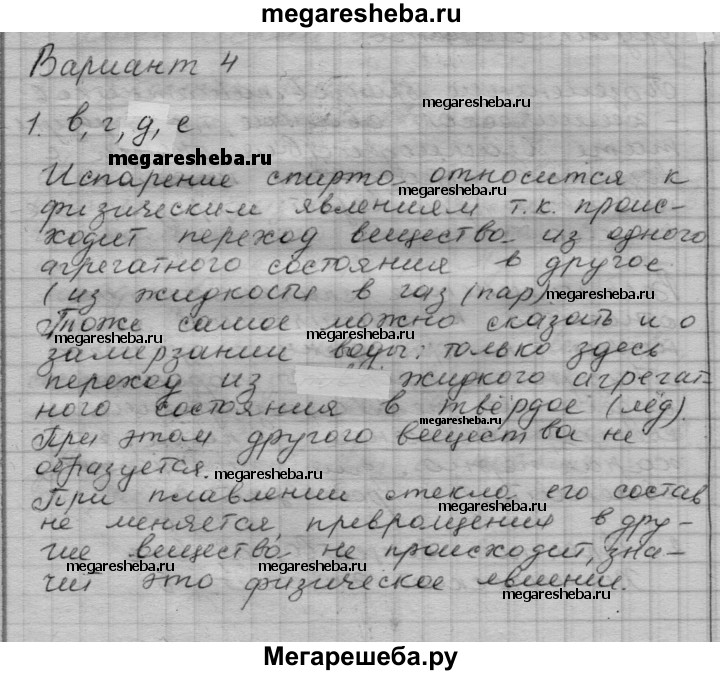 megaresheba.ru
Вариант 4
megaresheba.ru
1. в, г, д, е
megaresheba.ru
Испарение спирта относится к
megaresheba.ru
физическим явлениям т.к. проис-
ходит переход вещества из одного
агрегатного состояния в другое
(из жидкости в газ (пар).
megaresheba.ru
Тоже самое можно сказать и о
megaresheba.ru
замерзании воды: только здесь
переход из жидкого агрегат-
ного состояния в твёрдое (лёд).
megaresheba.ru
При этом другого вещества не
образуется.
megaresheba.ru
При плавлении стекла его состав
не меняется, превращения в дру-
гие вещества не происходит, зна-
megaresheba.ru
megaresheba.ru
чит это физическое явление.
megaresheba.ru
Мегарешеба.ру